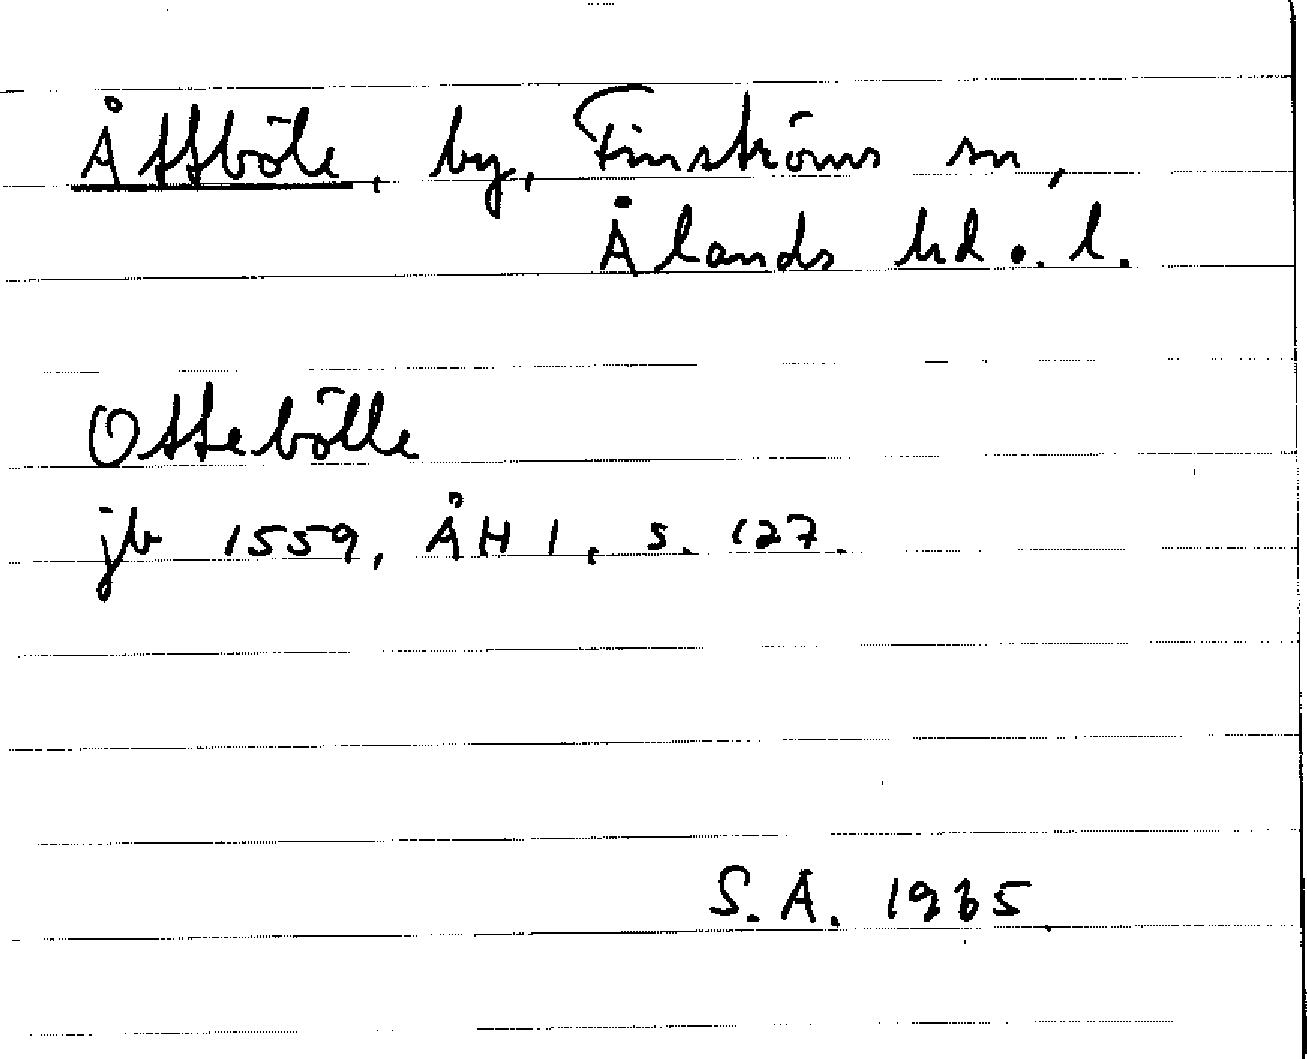 Åttböle, by, Finströms sn,
Ålands hd o. l.
Ottebölle
jb 1559, ÅH 1, s. 127.
S.A. 1965